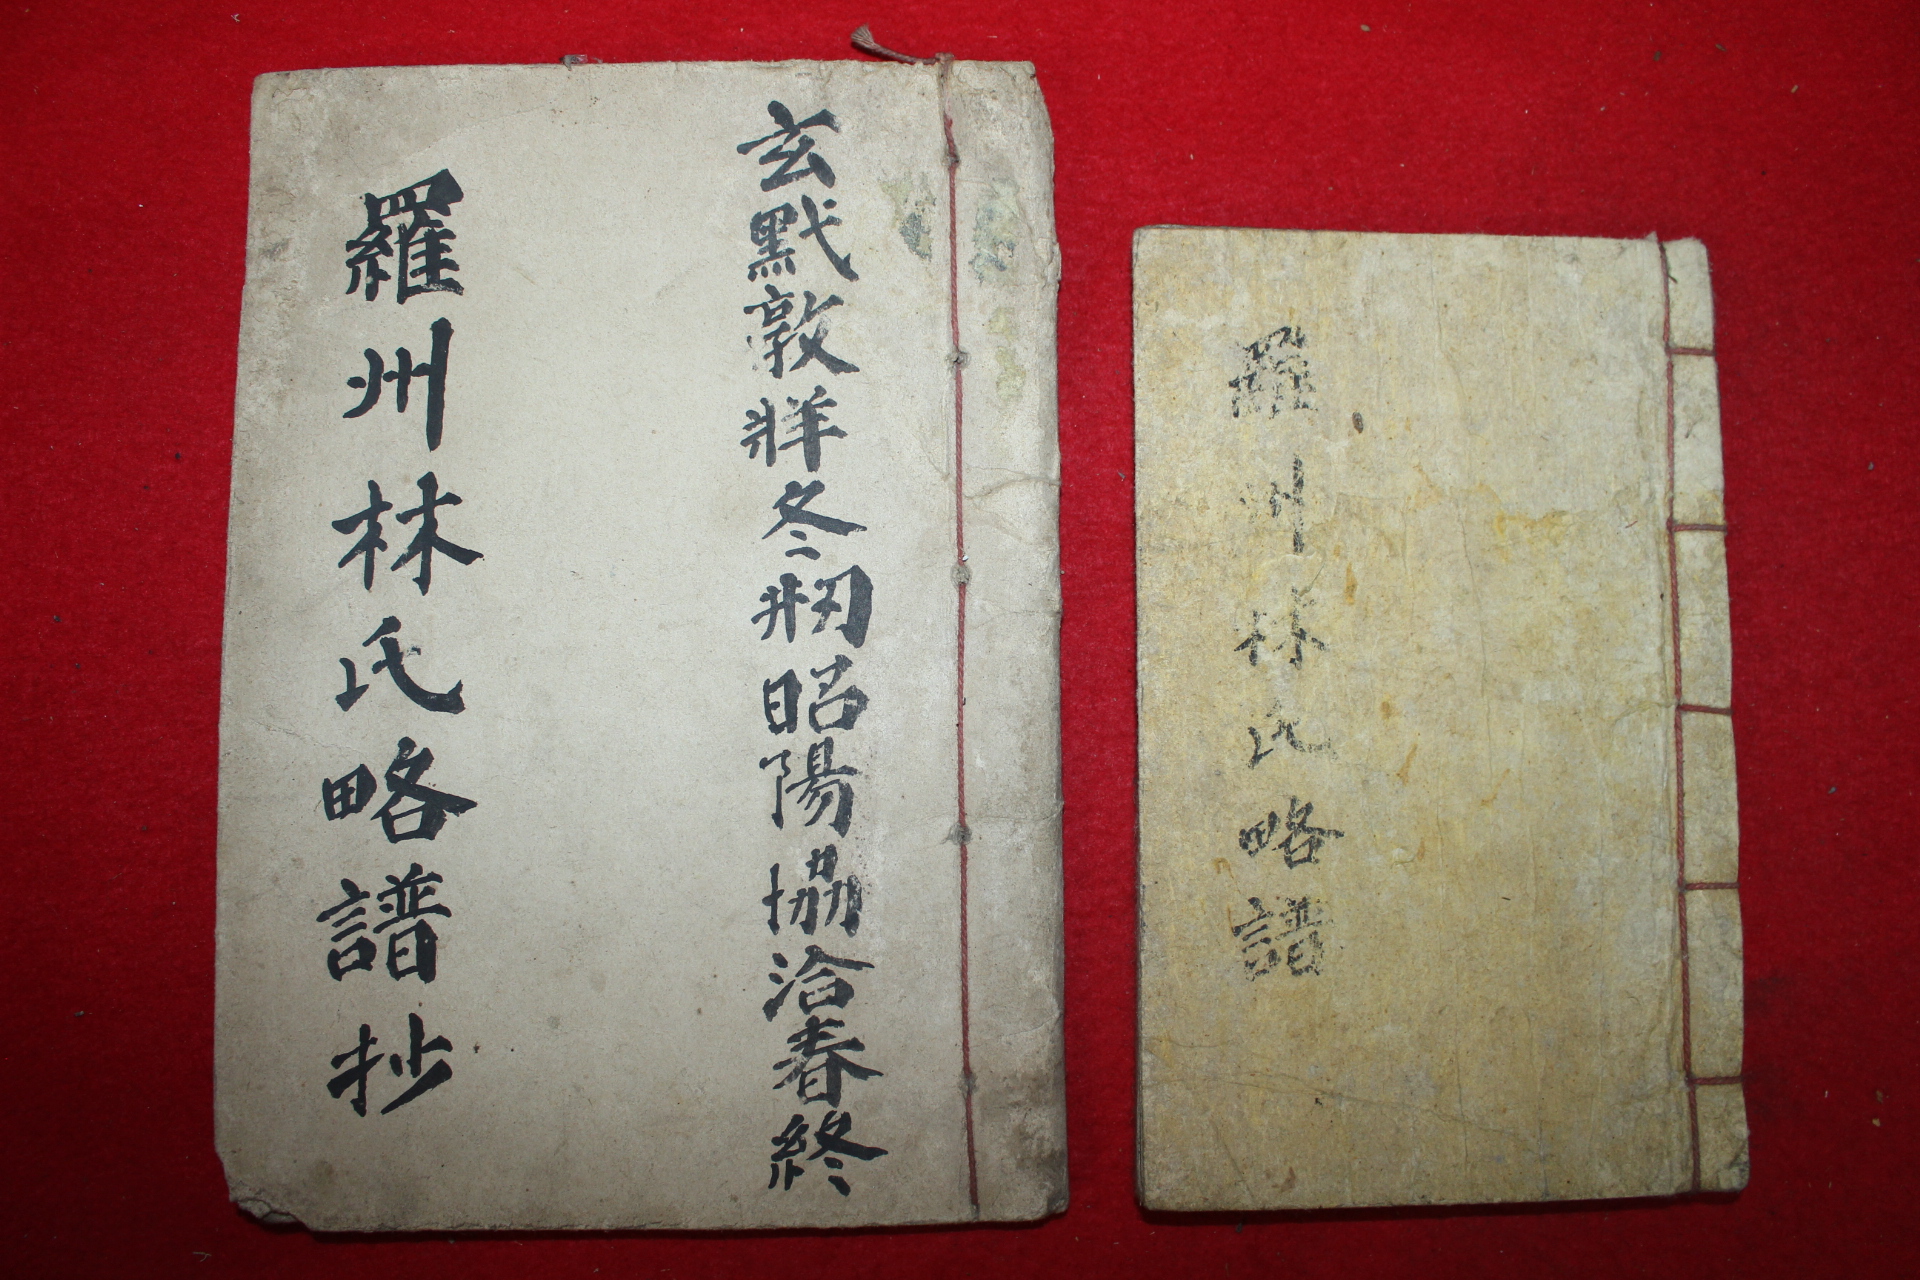 玄黙敦牂冬刱昭陽協洽春終
羅州林氏略譜抄
羅州林氏略譜